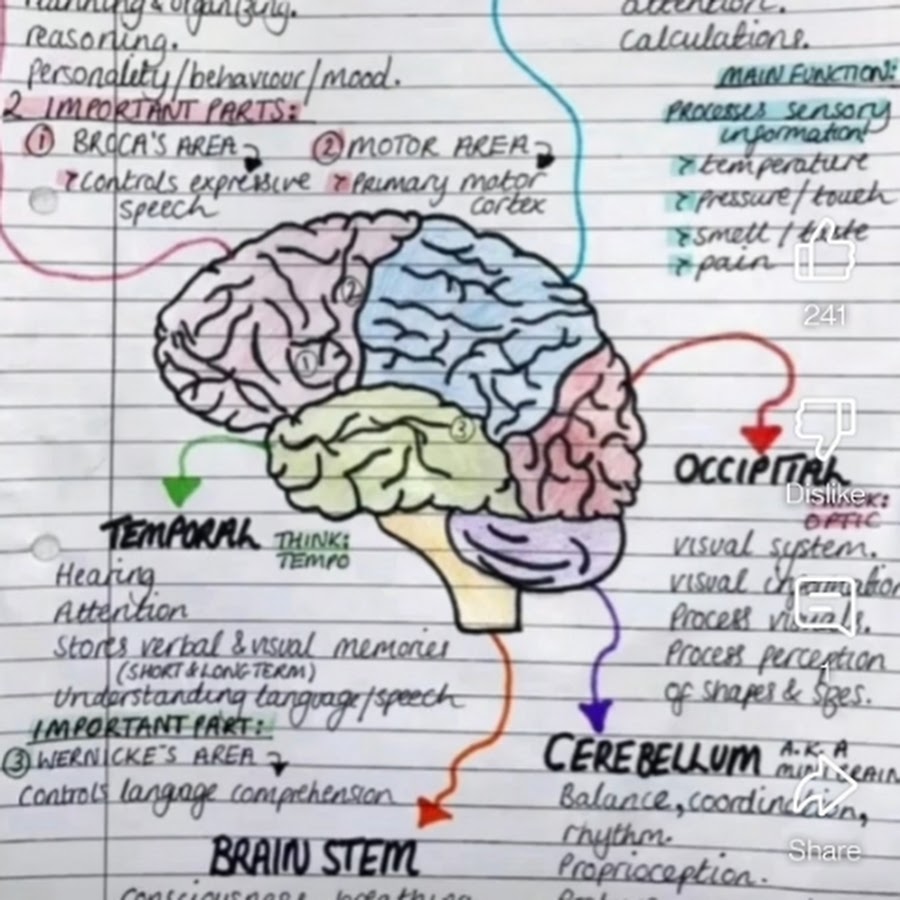 planning & organizing.
reasoning.
personality/behaviour/mood.
2 IMPORTANT PARTS:
① BROCA'S AREA
? controls expressive
speech
② MOTOR AREA
? Primary motor
cortex
attention.
calculations.
MAIN FUNCTION:
PROCESSES sensory
information!
? temperature
? pressure/touch
? smell / taste
? pain
241
②
①
③
OCCIPITAL
Dislike
THINK:
OPTIC
visual system.
visual information
Process visuals.
Process perception
of shapes & sizes.
1
TEMPORAL
THINK:
TEMPO
Hearing
Attention
Stores verbal & visual memories
(SHORT & LONG TERM)
Understanding language/speech
IMPORTANT PART:
③ WERNICKE'S AREA
Controls langage comprehension
CEREBELLUM A.K.A
MINI BRAIN
Balance, coordination,
rhythm.
Proprioception.
Share
BRAIN STEM
consciousness, breathing